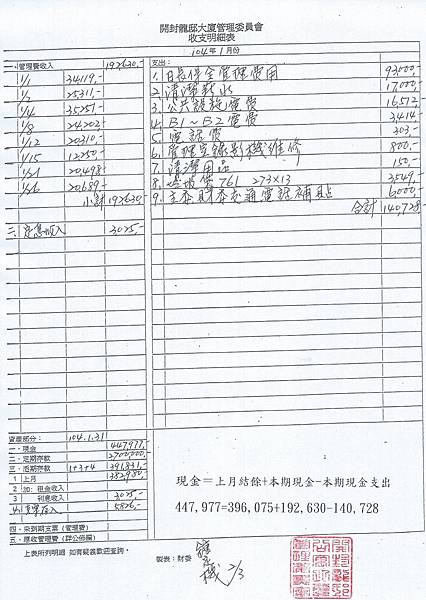 開封龍邸大廈管理委員會
收支明細表
104年1月份
一、管理費收入 192630.-
1/1 34119.-
1/2 25311.-
1/4 35251.-
1/8 24202.-
1/12 20310.-
1/15 12250.-
1/21 20,498.-
1/26 20,689.-
小計 192630.-
二、定息收入 3025.-
支出：
1. 日長保全管理費用 93000.-
2. 清潔薪水 17,000.-
3. 公共設施電費 16,512.-
4. B1～B2電費 3,414.-
5. 電話費 303.-
6. 管理室錄影機維修 800.-
7. 清潔用品 150.-
8. 垃圾費 761 273×13 3,549.-
9. 主委財委交通電話補貼 6,000.-
合計 140,728.-
管理部分： 104.1.31
一、現金 447,977.-
二、定期存款 2700000.-
三、活期存款 1+3+4 391,831.-
1 上月 382,980.-
2 加：租金收入
3 利息收入 3025.-
4. 支票存入 5826.-
四、未到期支票（管理費）
五、應收管理費（詳公佈欄）
上表所列明細 如有疑義歡迎查詢。
製表：財委
2/3
現金＝上月結餘+本期現金-本期現金支出
447,977=396,075+192,630-140,728